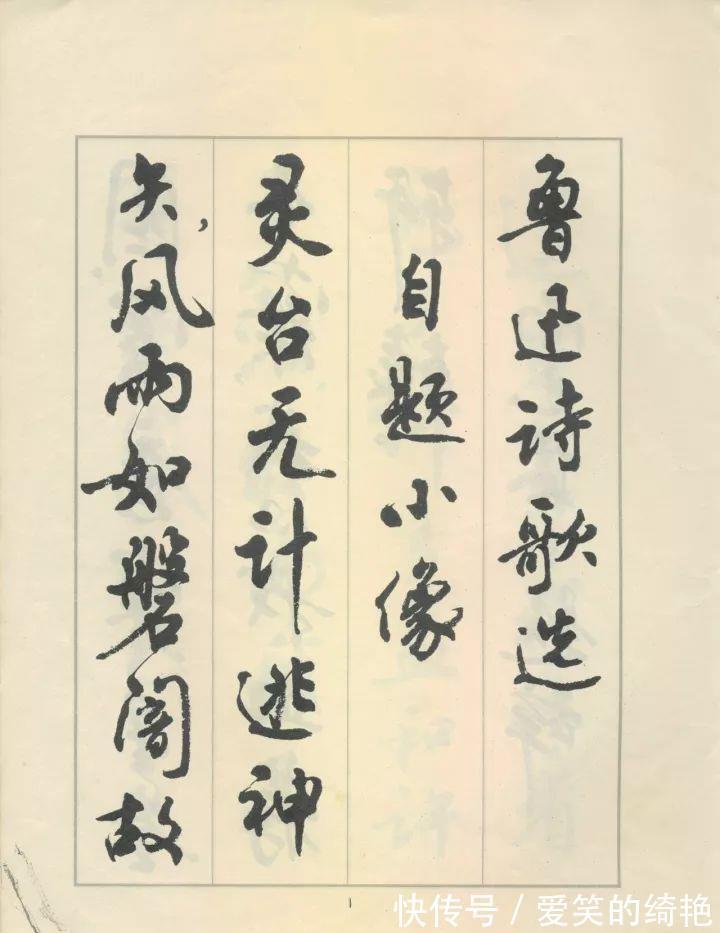 鲁迅诗歌选
自题小像
灵台无计逃神
矢,风雨如磐闇故
1
快传号 / 爱笑的绮艳